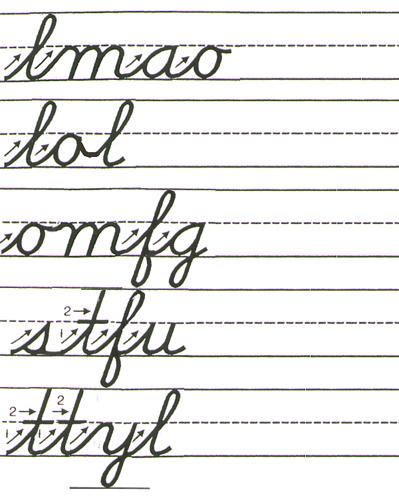 lmao
lol
omfg
2
1
stfu
2 2
1 1
ttyl